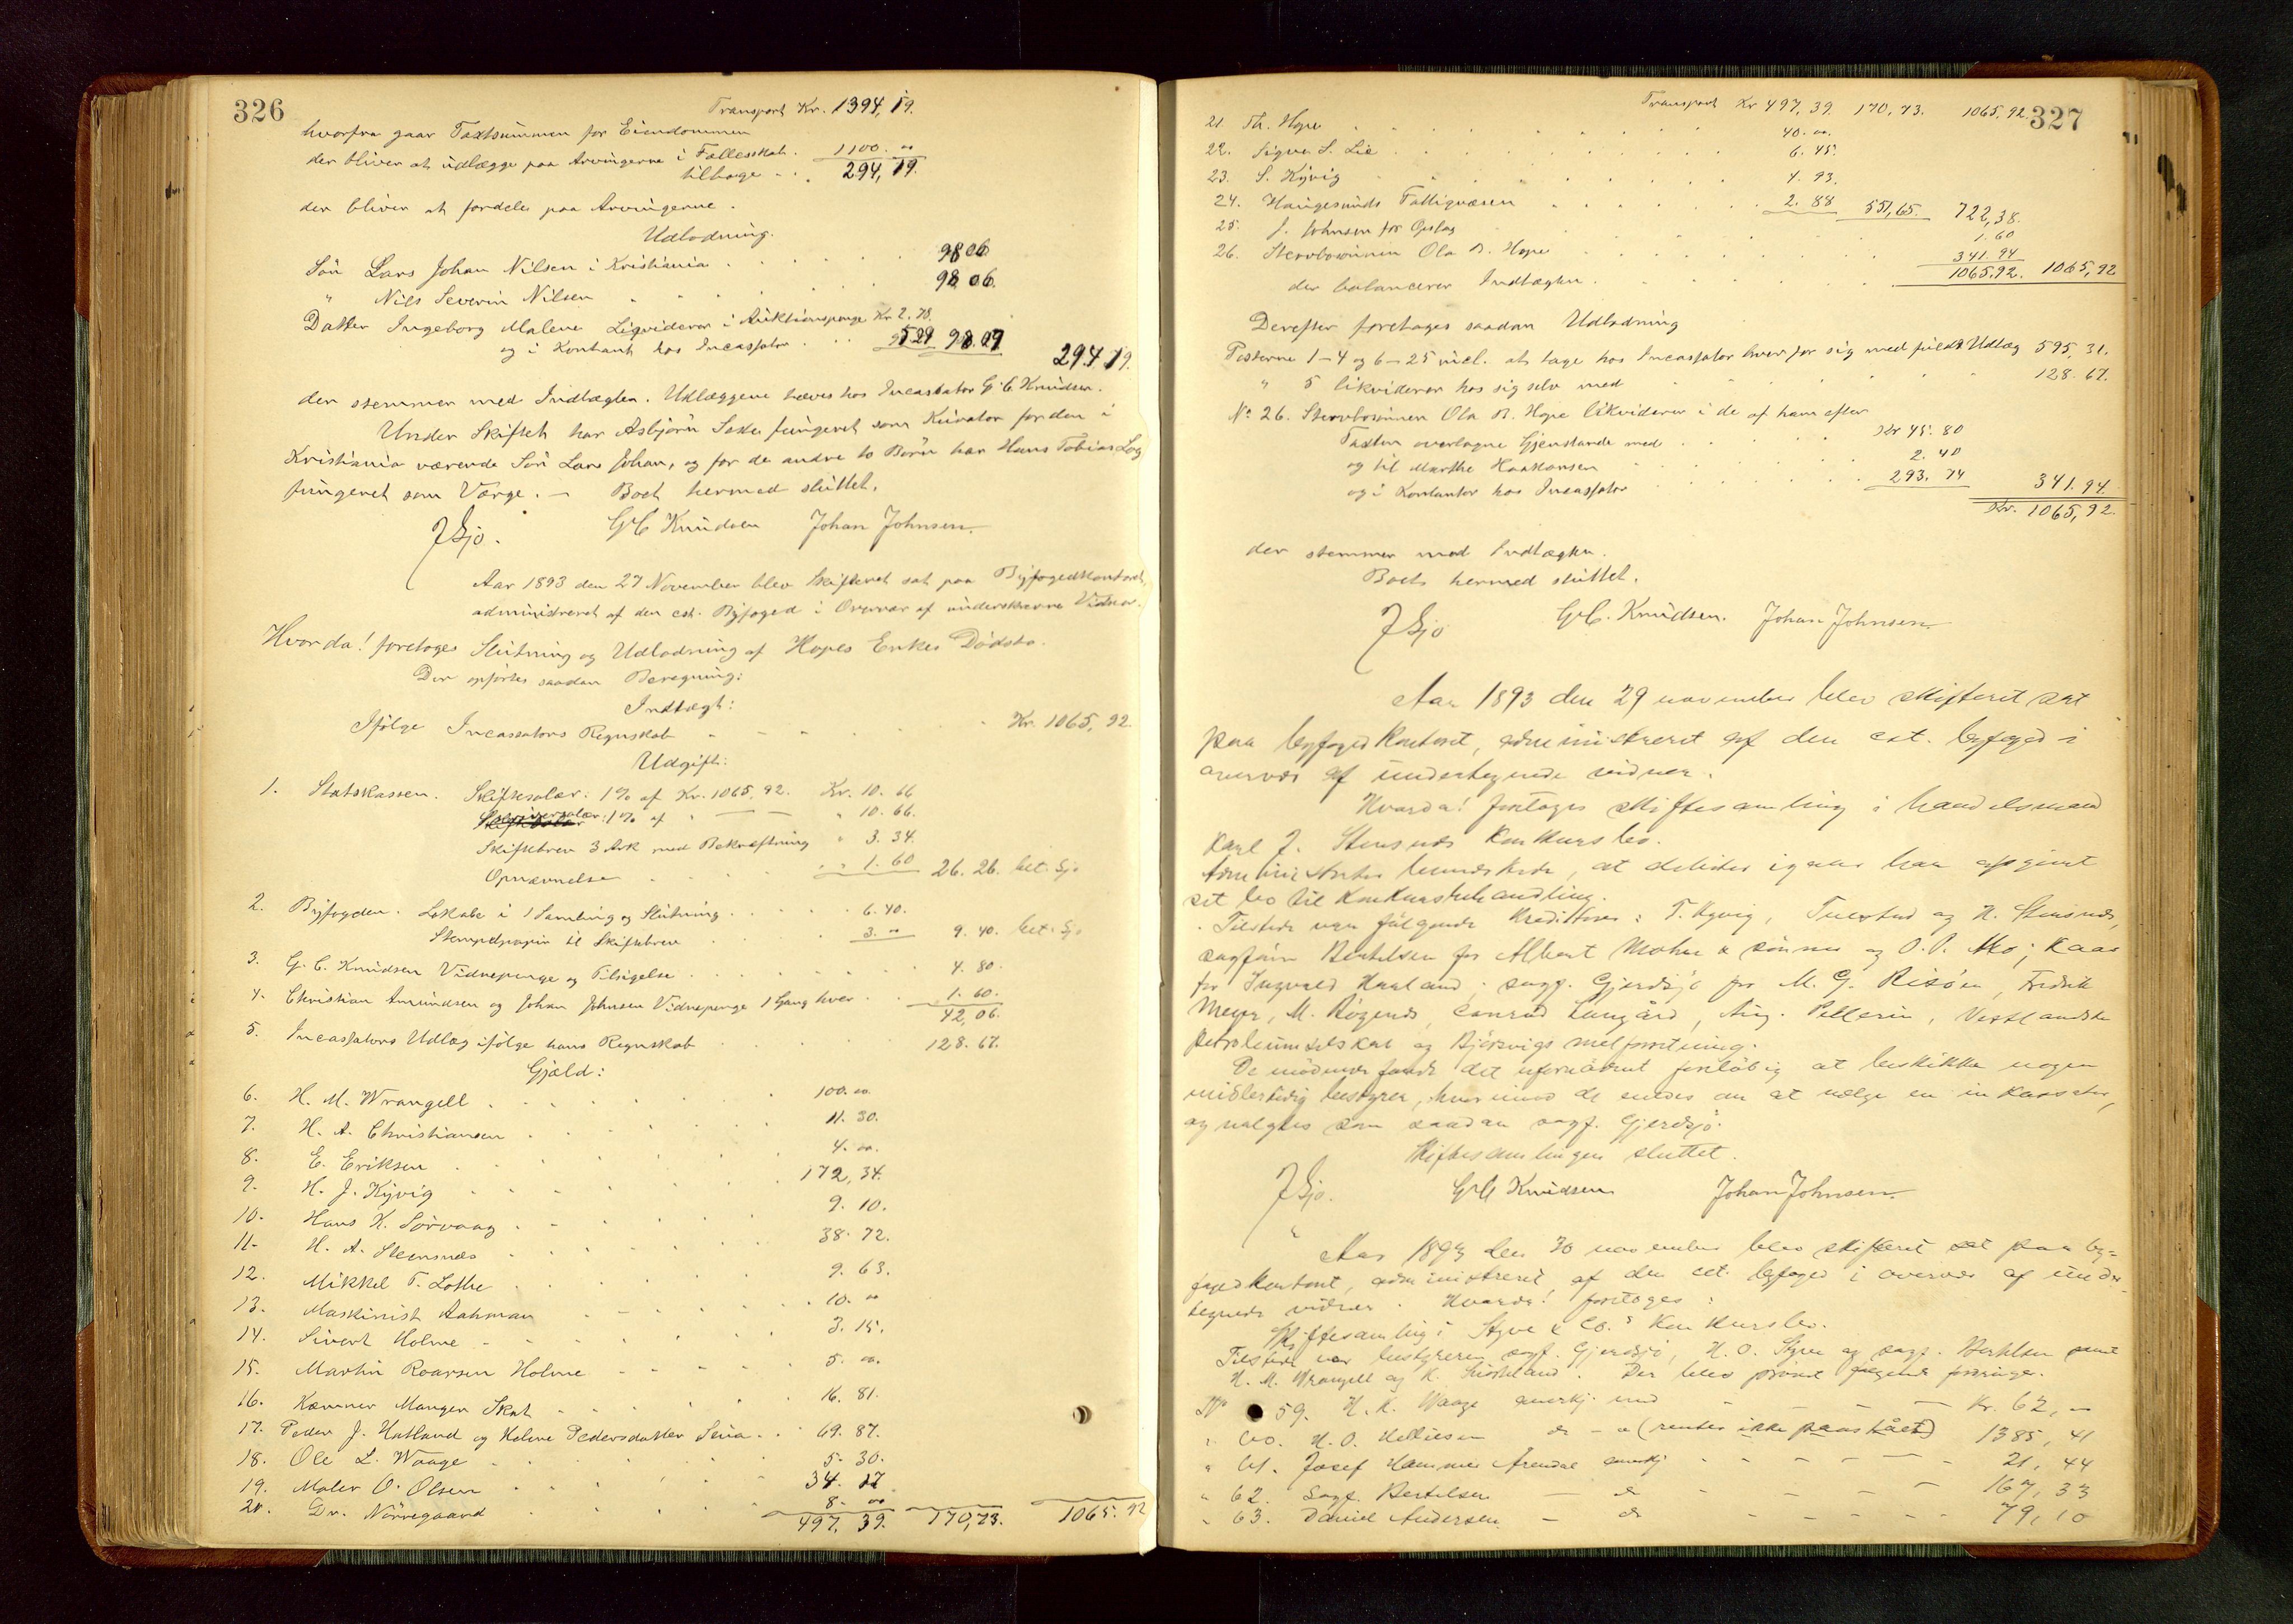 326
Transport Kr. 1394,19.
hvorfra gaar Taxtsummen for Eiendommen
der bliver at udlægge paa Arvingerne i Fællesskab. 1100. "
tilbage . . 294,19.
der bliver at fordeles paa Arvingerne.
Udlodning.
Søn Lars Johan Nilsen i Kristiania . . . 98 06
" Nils Severin Nilsen . . . 98 06.
Datter Ingeborg Malene Liqviderer i Auktionspenge Kr 2.78.
og i Kontant hos Incassator . . . 95 29 98.07 294.19.
der stemmer med Indtægten. Udlæggene hæves hos Incassator G. C. Knudsen.
Under Skiftet har Asbjørn fungeret som Kurator for den i
Kristiania værende Søn Lars Johan, og for de andre to Børn har Hans Tobias
fungeret som Værge. – Boet hermed sluttet.
J Gjo. GC Knudsen Johan Johnsen.
Aar 1893 den 27 November blev Skifteret sat paa Byfogedkontoret,
administreret af den cst. Byfoged i Overvær af underskrevne Vidner.
Hvorda! foretoges Slutning og Udlodning af Hopes Enkes Dødsbo.
Der opførtes saadan Beregning:
Indtægt:
Ifølge Incassators Regnskab - - - Kr. 1065,92
Udgift:
1. Statskassen. Skiftesalær: 1% af Kr. 1065,92. Kr. 10.66
Skriversalær: 1% af " — — " 10.66.
Skiftebrev 3 Ark med Bekræftning " 3.34.
Opnævnelse . . . " 1.60 26.26. bet. Gjo
2. Byfogden. Lokale i 1 Samling og Slutning . . . 6.40.
Stempelpapir til Skiftebrev . . . 3. " 9.40. bet. Gjo
3. G. C. Knudsen Vidnepenge og Tilsigelse . . . 4.80.
4. Christian Amundsen og Johan Johnsen Vidnepenge 1 Gang hver . . 1.60.
42,06.
5. Incassators Udlæg ifølge hans Regnskab . . . 128.67.
Gjæld:
6. H. M. Wrangell . . . 100. "
7. H. A. Christiansen . . . 11.30.
8. E. Eriksen . . . 4. "
9. H. J. Kyvig . . . 172,34.
10. Hans K. Sørvaag . . . 9.10.
11. H. A. Stensnæs . . . 38.72.
12. Mikkel T. Lothe . . . 9.63.
13. Maskinist Aahman . . . 10. "
14. Sivert Holme . . . 3.15.
15. Martin Roarsen Holme . . . 5. "
16. Kæmner Manger Skat . . . 16.81.
17. Peder J. Hatland og Helene Pedersdatter Seua . . 69.87.
18. Ole L. Waage . . . 5.30.
19. Maler O. Olsen . . . 34.17
20. Dr. Nörregaard . . . 8. "
497,39. 170,73. 1065.92
327
Transport Kr 497,39. 170,73. 1065,92.
21. Th. Hope . . . 40. "
22. Signe S. Lie . . . 6.45.
23. S. Kyvig . . . 4.93.
24. Haugesunds Fattigvæsen . . . 2.88 551,65. 722,38.
25. J. Johnsen for Opslag . . . 1.60
26. Stervbosønnen Ola B. Hope . . . 341.94
der balancerer Indtægten . . . 1065,92. 1065,92
Derefter foretoges saadan Udlodning
Posterne 1-4 og 6-25 incl. at tage hos Incassator hver for sig med fuldt Udlæg 595,31.
" 5 likviderer hos sig selv med . . . 128.67.
No 26. Stervbosønnen Ola B. Hope likviderer i de af ham efter
Taxten overtagne Gjenstande med . . . Kr 45.80
og til Marthe Haakonsen . . . 2.40
og i Kontanter hos Incassator . . . 293.74 341.94.
Kr. 1065,92.
der stemmer med Indtægten.
Boet hermed sluttet.
J Gjo GC. Knudsen. Johan Johnsen.
Aar 1893 den 29 november blev skifteret sat
paa byfogedkontoret, administreret af den cst. byfoged i
overvær af undertegnede vidner.
Hvorda! foretoges skiftesamling i handelsmand
Karl J. Stensnæs konkursbo.
Administrator bemærkede, at debitor igaar har opgivet
sit bo til konkursbehandling.
Tilstede var følgende kreditorer: T. Kyvig, Tuestad og H. Stensnæs,
sagfører Bertelsen for Albert Mohn & sønner og O. P. Moe; Kaas
for Ingvald Haaland; sagf. Gjerdsjø for M. G. Risøen, Fredrik
Meyer, M. Røgends, Conrad Langård, Aug. Pellerin, Vestlandske
Petroleumselskab og Bjørsvigs melforretning.
De mødende fandt det ufornødent foreløbig at beskikke nogen
midlertidig bestyrer, hvorimod de enedes om at vælge en inkassator,
og valgtes som saadan sagf. Gjerdsjø.
Skiftesamlingen sluttet.
J Gjo. GC Knudsen Johan Johnsen.
Aar 1893 den 30 november blev skifteret sat paa by=
fogedkontoret, administreret af den cst. byfoged i overvær af under
tegnede vidner. Hvorda! foretoges:
Skiftesamling i Styve & Co.s konkursbo.
Tilstede var bestyreren sagf. Gjerdsjø, H. O. Styve og sagf. Bertelsen samt
H. M. Wrangell og K. . Der blev prøvet følgende fordringer.
No 59. H. K. Waage anerkj. med - - - Kr. 62, "
" 60. H. O. Helliesen do - " (renter ikke paastået) 1385,41
" 61. Josef Hammer Arendal anerkj - - - 21,44
" 62. Sagf. Bertelsen — do - - - 167,33
" 63. Daniel Andersen — do - - - 79,10